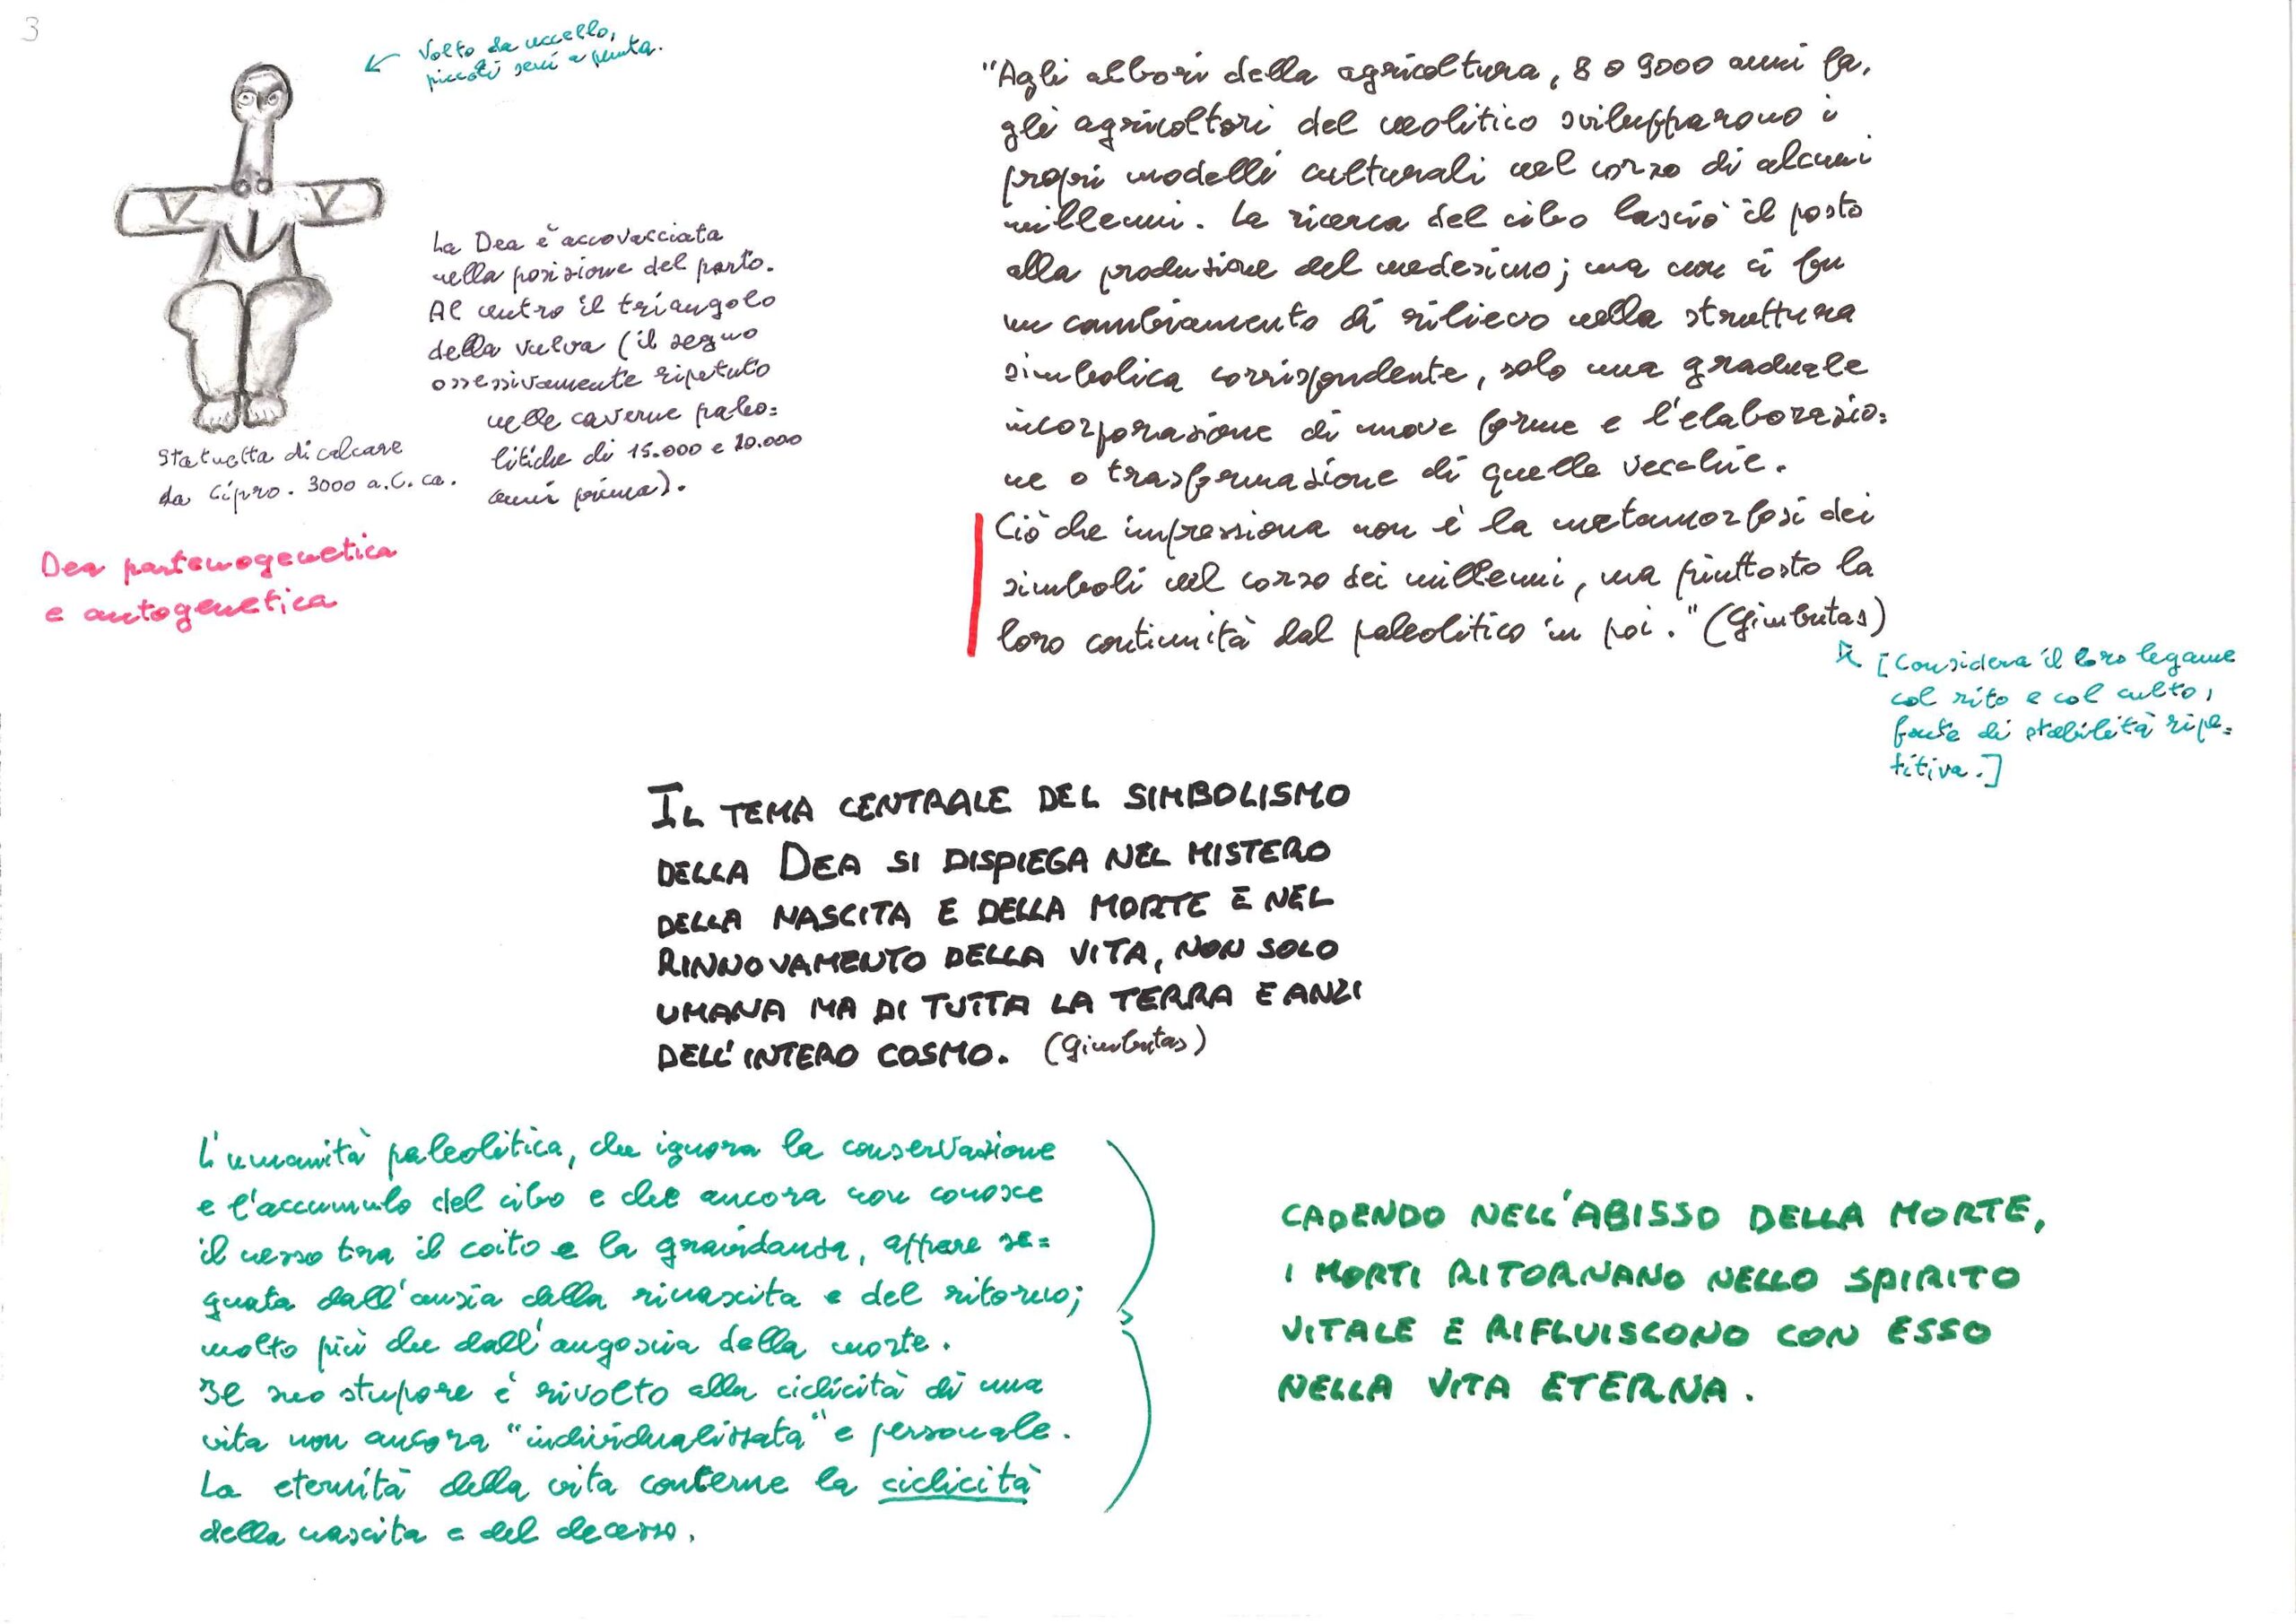 3
Volto da uccello,
piccoli seni a punta.
La Dea è accovacciata
nella posizione del parto.
Al centro il triangolo
della vulva (il segno
ossessivamente ripetuto
nelle caverne paleo=
litiche di 15.000 e 20.000
anni prima).
Statuetta di calcare
da Cipro. 3000 a.C. ca.
Dea partenogenetica
e autogenetica
"Agli albori della agricoltura, 8 o 9000 anni fa,
gli agricoltori del neolitico svilupparono i
propri modelli culturali nel corso di alcuni
millenni. La ricerca del cibo lasciò il posto
alla produzione del medesimo; ma non ci fu
un cambiamento di rilievo nella struttura
simbolica corrispondente, solo una graduale
incorporazione di nuove forme e l'elaborazio=
ne o trasformazione di quelle vecchie.
Ciò che impressiona non è la metamorfosi dei
simboli nel corso dei millenni, ma piuttosto la
loro continuità dal paleolitico in poi." (Gimbutas)
[Considera il loro legame
col rito e col culto,
fonte di stabilità ripe=
titiva.]
IL TEMA CENTRALE DEL SIMBOLISMO
DELLA DEA SI DISPIEGA NEL MISTERO
DELLA NASCITA E DELLA MORTE E NEL
RINNOVAMENTO DELLA VITA, NON SOLO
UMANA MA DI TUTTA LA TERRA E ANZI
DELL'INTERO COSMO. (Gimbutas)
L'umanità paleolitica, che ignora la conservazione
e l'accumulo del cibo e che ancora non conosce
il nesso tra il coito e la gravidanza, appare se=
gnata dall'ansia della rinascita e del ritorno;
molto più che dall'angoscia della morte.
Il suo stupore è rivolto alla ciclicità di una
vita non ancora "individualizzata" e personale.
La eternità della vita contiene la ciclicità
della nascita e del decesso.
CADENDO NELL'ABISSO DELLA MORTE,
I MORTI RITORNANO NELLO SPIRITO
VITALE E RIFLUISCONO CON ESSO
NELLA VITA ETERNA.